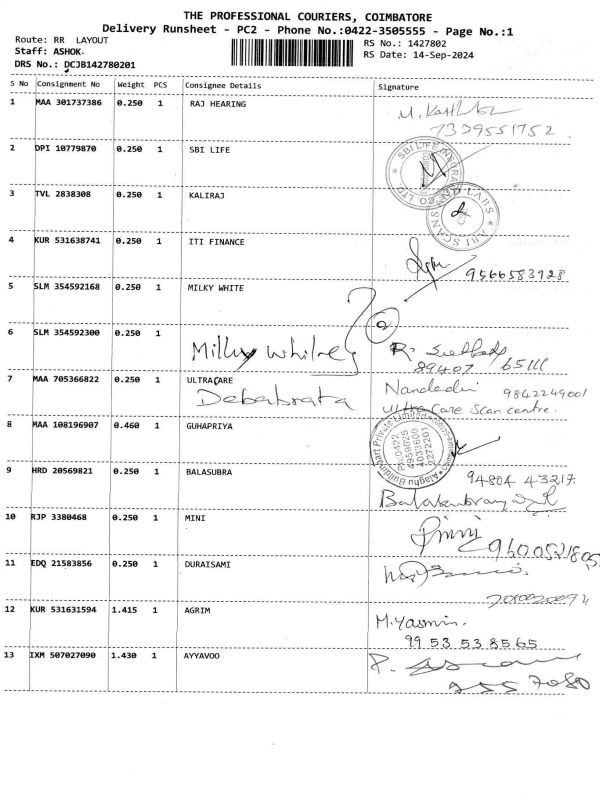 THE PROFESSIONAL COURIERS, COIMBATORE
Delivery Runsheet - PC2 - Phone No.:0422-3505555 - Page No.:1
Route: RR LAYOUT
Staff: ASHOK.
DRS No.: DCJB142780201
RS No.: 1427802
RS Date: 14-Sep-2024
S No Consignment No Weight PCS Consignee Details Signature
1 MAA 301737386 0.250 1 RAJ HEARING
7339551752
2 DPI 10779870 0.250 1 SBI LIFE
SBI LIFE CO LTD
3 TVL 2838308 0.250 1 KALIRAJ
ARI SCANS LABS
4 KUR 531638741 0.250 1 ITI FINANCE
9566583928
5 SLM 354592168 0.250 1 MILKY WHITE
6 SLM 354592300 0.250 1 Milky Whitney
89407 65111
7 MAA 705366822 0.250 1 ULTRACARE
Debabrata
Nandadini 9842249001
Ultra Care Scan centre.
8 MAA 108196907 0.460 1 GUHAPRIYA
Alaghu Buildmart Private Limited
PH:0422
4959625
4033600
2272207
9 HRD 20569821 0.250 1 BALASUBRA
94804 43217
10 RJP 3380468 0.250 1 MINI
9600521805
11 EDQ 21583856 0.250 1 DURAISAMI
12 KUR 531631594 1.415 1 AGRIM
M.Yasmin.
99 53 53 8565
13 IXM 507027090 1.430 1 AYYAVOO
255 7080